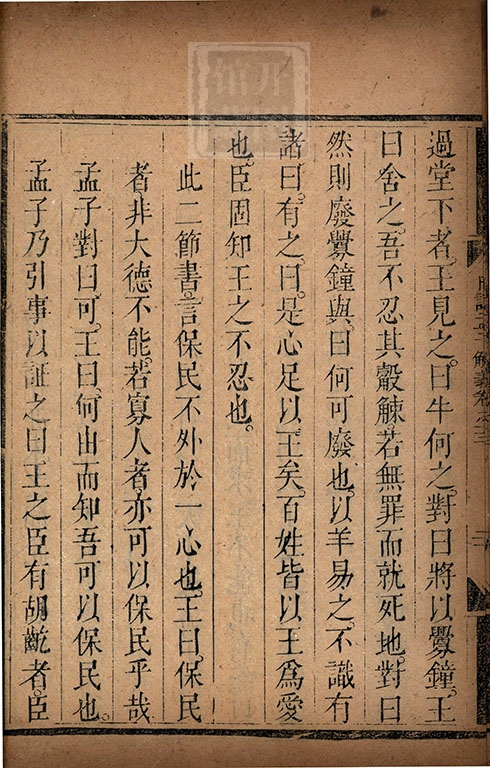 過堂下者。王見之。曰牛何之。對曰將以釁鐘。王
曰舍之。吾不忍其觳觫若無罪而就死地。對曰
然則廢釁鐘與。曰何可廢也。以羊易之。不識有
諸。曰。有之。曰。是心足以王矣。百姓皆以王爲愛
也。臣固知王之不忍也。
此二節書。言保民不外於一心也。王曰。保民
者。非大德不能。若寡人者。亦可以保民乎哉
孟子對曰。可。王曰。何由而知吾可以保民也。
孟子乃引事以証之曰。王之臣有胡齕者。臣